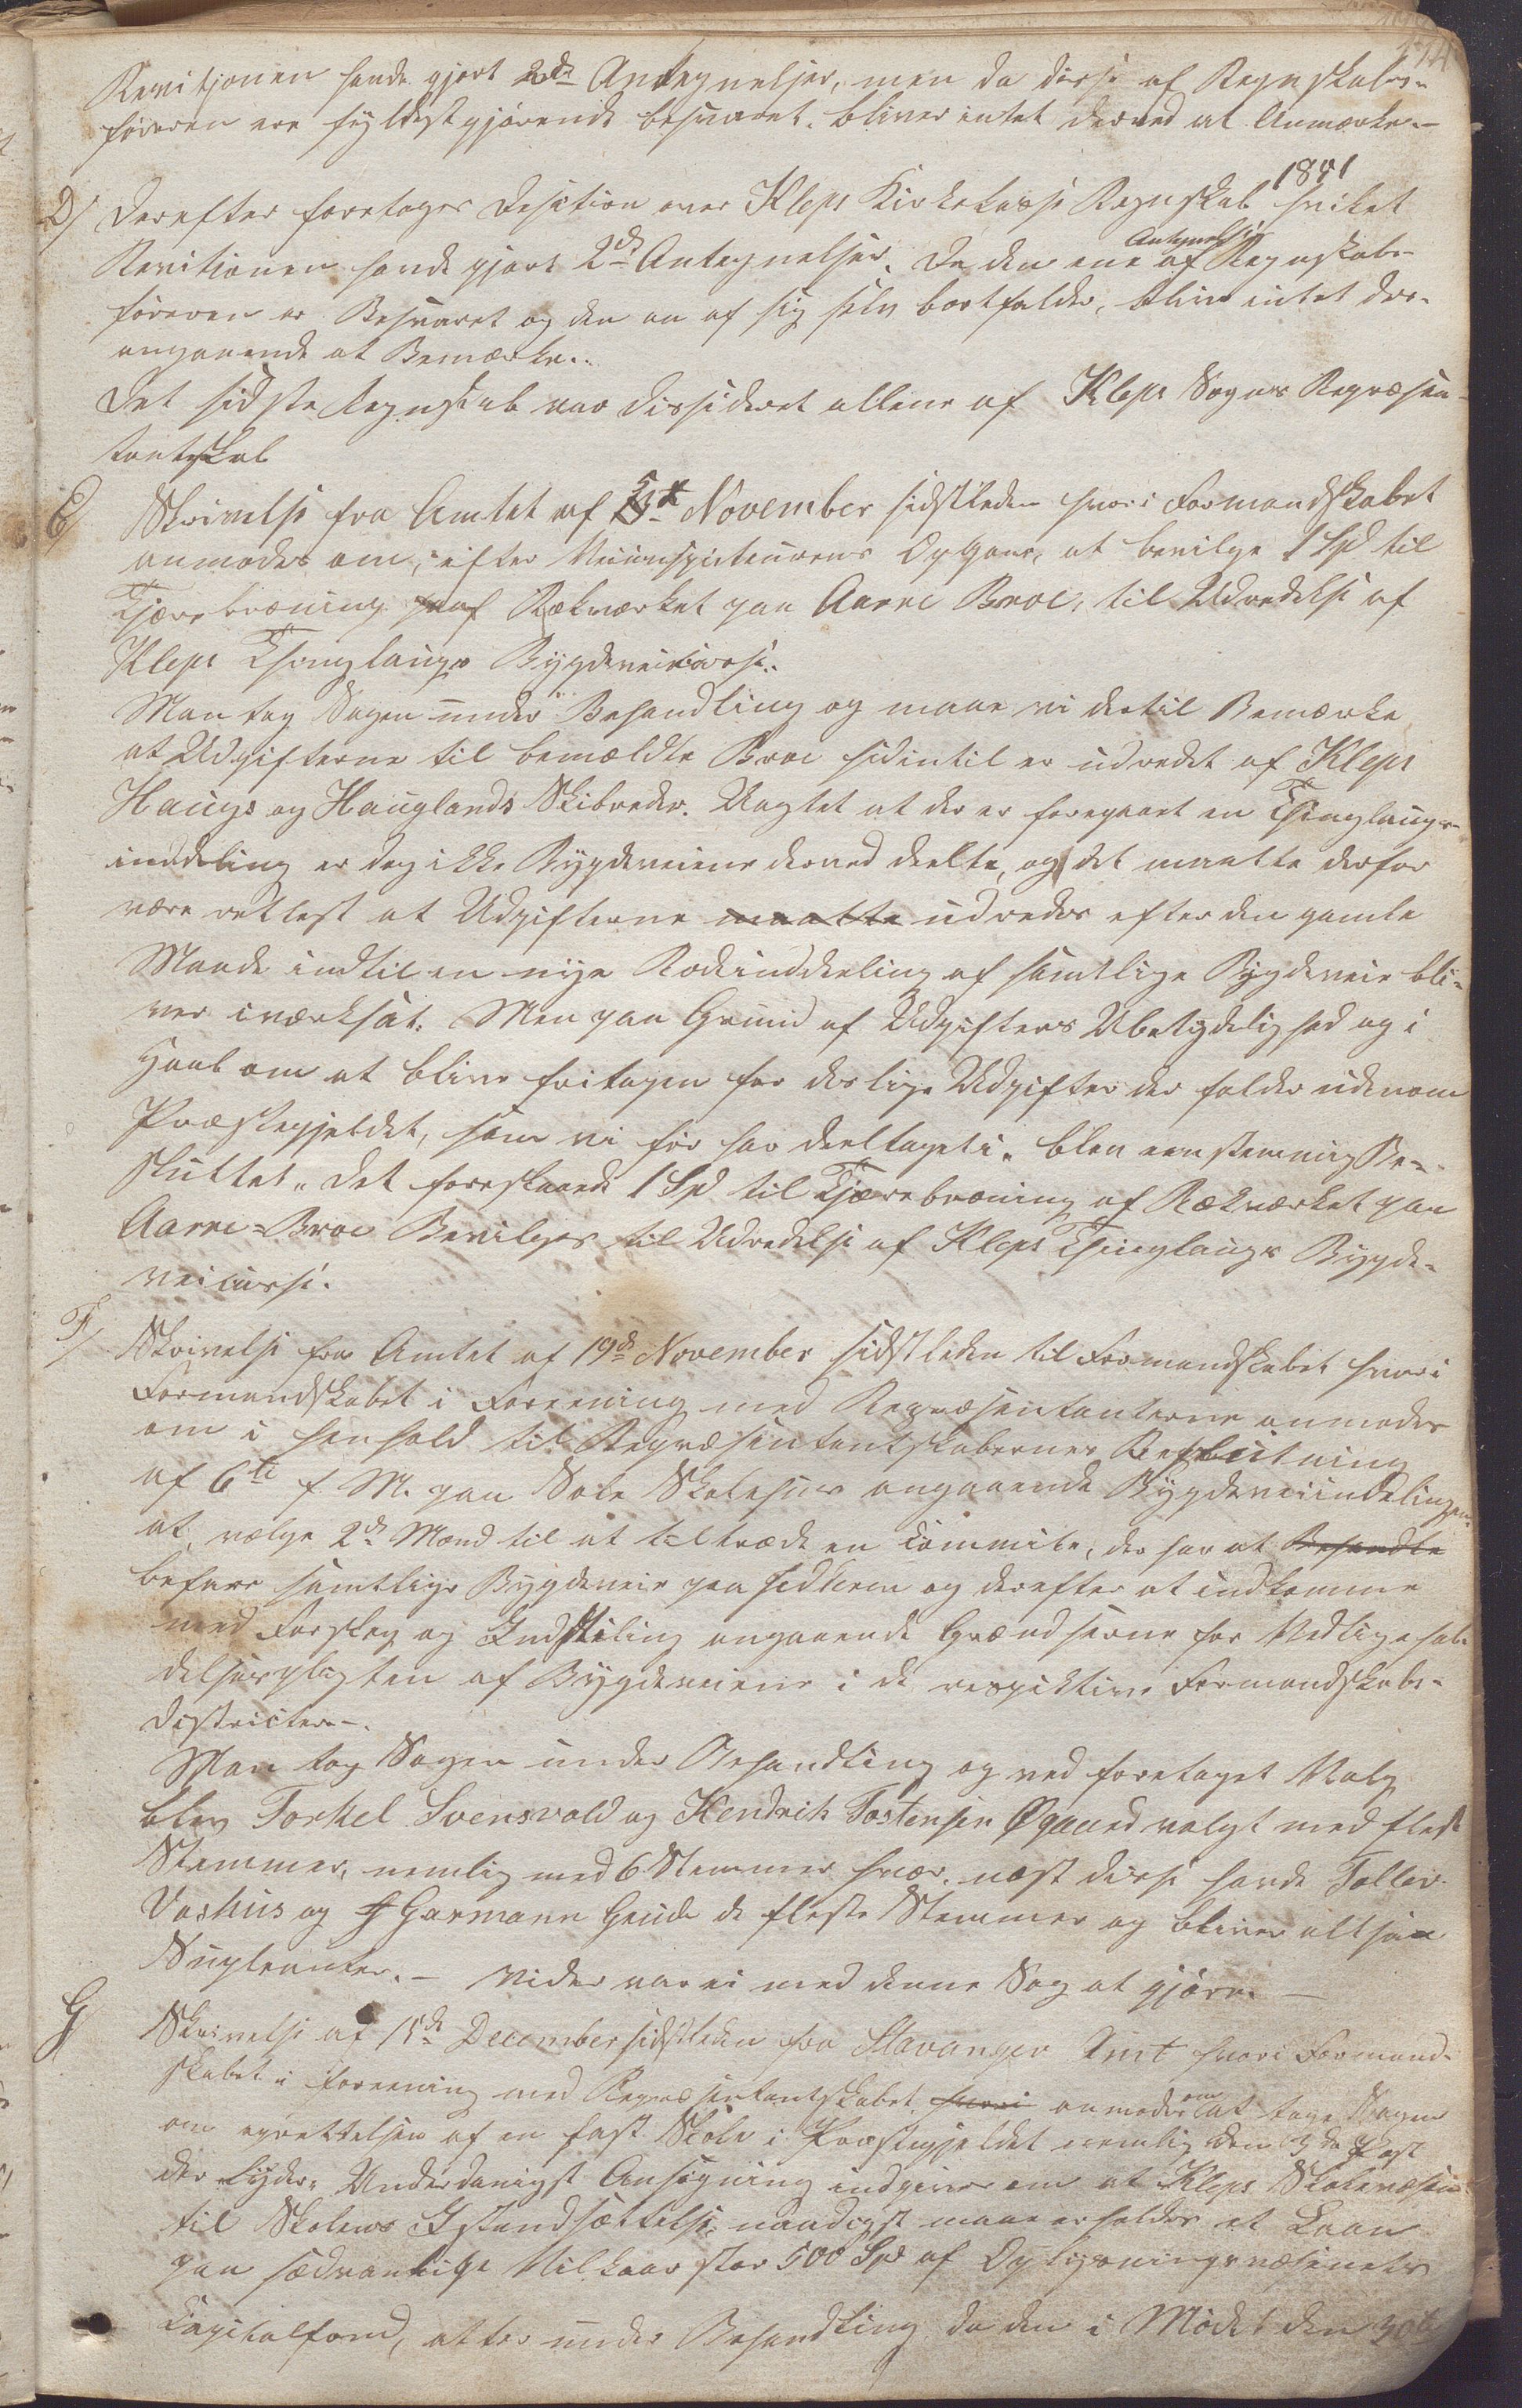 174
Revisjonen havde gjort 2de Antegnelser, men da disse af Regnskabs-
føreren ere fyldestgjørende besvaret, bliver intet derved at Anmærke.—
D/ Derefter foretoges Desition over Kleps Kirkekasse Regnskab 1841 hvilket
Revisionen havde gjort 2de Antegnelser. Da den ene Antegnelse af Regnskabs-
føreren er Besvaret og den en af sig selv bortfalder, bliver intet der-
angaaende at Bemærke..
Det sidste Regnskab var dessideret allene af Kleps Sogns Repræsen-
tantskab
E/ Skrivelse fra Amtet af 5te November sidstleden hvori Formandskabet
anmodes om, efter Veiinspecteurens Opgave, at bevilge 1 Spd til
Tjærebræning af Rækværket paa Aarre Broe, til Udredelse af
Kleps Thinglaugs Bygdeveicasse..
Man tog Sagen under Behandling og maae vi dertil Bemærke
at Udgifterne til bemældte Broe sidintil er udredet af Kleps
Haugs og Hauglands Skibreder. Uagtet at der er foregaaet en Thinglaugs-
inddeling er dog ikke Bygdeveiene derved deelte, og det maatte derfor
være rettest at Udgifterne maatte udredes efter den gamle
Maade indtil en nye Rodeinddeeling af samtlige Bygdeveie bli-
ver iværksat. Men paa Grund af Udgifters Ubetydelighed og i
Haab om at blive fritagen for deslige Udgifter der falder udenom
Præstegjeldet, som vi før har deeltaget i, blev eenstemmig Be-
sluttet „Det foreslaaede 1 Spd til Tjærebræning af Rækværket paa
Aarre-Broe Bevilges til Udredelse af Kleps Thinglaugs Bygde-
veicasse.
F/ Skrivelse fra Amtet af 19de November sidstleden til Formandskabet hvori
Formandskabet i Forening med Repræsentanterne anmodes
om i Henhold til Repræsentantskabernes Beslutning
af 6te f. M. paa Sole Skolehus angaaende Bygdeveiindelingen
at vælge 2de Mænd til at tiltræde en Commite, der har at Behandle
befare samtlige Bygdeveie paa Jedderen og derefter at indkomme
med Forslag og Indstilling angaaende Grændserne for Vedligehol-
delsespligten af Bygdeveiene i de respektive Formandskabs-
districter.—
Man tog Sagen under Behandling og ved foretaget Valg
blev Torkel Svensvold og Hendrik Tostensen Øgaard valgt med flest
Stemmer, nemlig med 6 Stemmer hver, næst disse havde Tollev
Vashus og G Garmann Grude de fleste Stemmer og bliver altsaa
Supleanter.— Vider var ei med denne Sag at gjøre.—
G Skrivelse af 15de December sidstleden fra Stavanger Amt hvori Formand-
skabet i Forening med Repræsentantskabet hvori anmodes om at tage Sagen
om oprettelsen af en fast Skole i Præstegjeldet nemlig den 3de Post
der lyder „Underdanigst Ansøgning indgives om at Kleps Skolevæsen
til Skolens Istandsættelse naadigst maae erholdes et Laan
paa sædvanlige Vilkaar stor 500 Spd af Oplysningsvæsenets
Capitalfond, atter under Behandling da den i Mødet den 30te